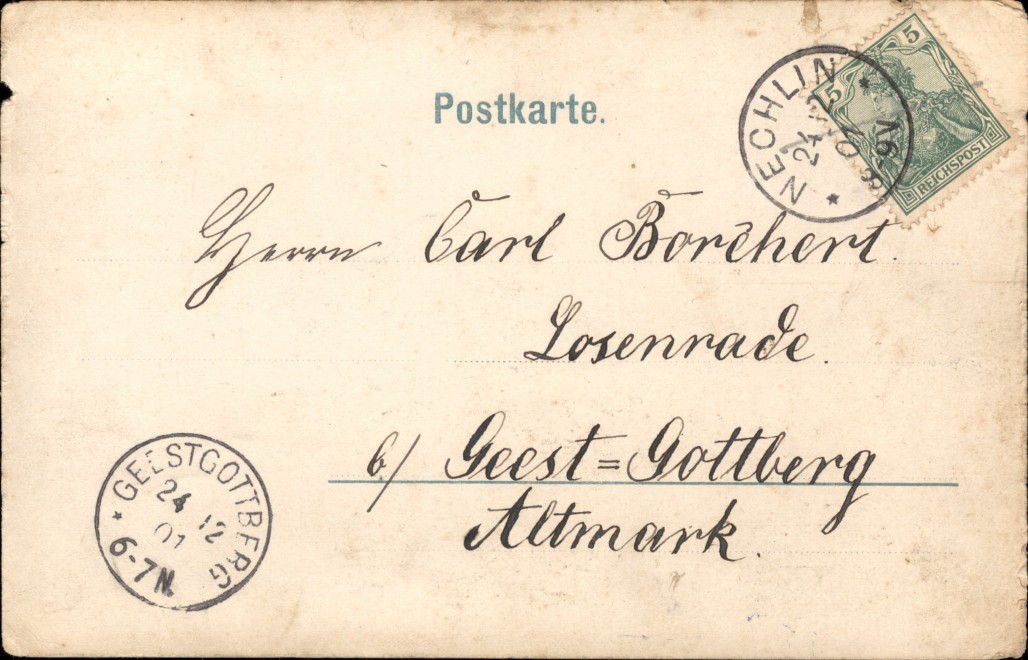 Postkarte.
5
5
REICHSPOST
NECHLIN
24 12
01
8-9V
Herrn Carl Borchert.
Losenrade.
b/ Geest=Gottberg
Altmark.
GEESTGOTTBERG
24 12
01
6-7N.